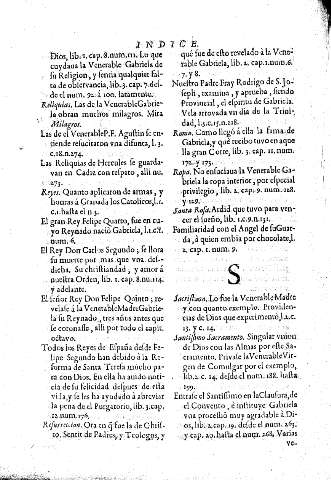 INDICE.
Dios, lib. 1. cap. 8. num. 111. Lo que
cuydaua la Venerable Gabriela de
su Religion, y sentia qualquier falta
de obseruancia, lib. 3. cap. 7. desde
el num. 92. à 100. latamente.
Reliquias, Las de la Venerable Gabriela
obran muchos milagros. Mira
Milagros.
Las de el Venerable P. F. Agustin se entiende
resucitaron vna difunta, l. 3.
c. 18. n. 274.
Las Reliquias de Hercules se guardavan
en Cadiz con respeto, alli nu.
273.
Reyes. Quanto aplicaron de armas, y
honras à Granada los Catolicos, l. 1.
c. 1. hasta el n. 3.
El gran Rey Felipe Quarto, fue en cuyo
Reynado naciò Gabriela, l. 1. c.
num. 6.
El Rey Don Carlos Segundo; se llora
su muerte por mas que voz desdicha.
Su christiandad, y amor à
nuestra Orden, lib. 1. cap. 8. nu. 114.
y adelante.
El señor Rey Don Felipe Quinto; revelase
à la Venerable Madre Gabriela
su Reynado, tres años antes que
se coronasse, alli por todo el capit.
octavo.
Todos los Reyes de España desde Felipe
Segundo han debido à la Reforma
de Santa Teresa mucho para
con Dios. En ella ha auido noticia
de su felicidad despues de esta
vida, y se les ha ayudado à abreviar
la pena de el Purgatorio, lib. 3. cap.
12. num. 176.
Resurreccion. Ora en q̃ fue la de Christo,
Sentir de Padres, y Teologos, y
què fue de esto revelado à la Venerable
Gabriela, lib. 2. cap. 1. num. 6.
7. y 8.
Nuestro Padre Fray Rodrigo de S. Joseph,
examina, y aprueba, siendo
Provincial, el espiritu de Gabriela.
Vela arrobada vn dia de la Trinidad,
l. 3. c. 15. n. 218.
Roma. Como llegò à ella la fama de
Gabriela, y què recibo tuvo en aquella
gran Corte, lib. 3. cap. 11. num.
172. y 173.
Ropa. No ensuciaua la Venerable Gabriela
la ropa interior, por especial
privilegio, lib. 2. cap. 9. num. 128.
y 129.
Santa Rosa. Ardid que tuvo para vencer
el sueño, lib. 1. c. 9. n. 131.
Familiaridad con el Angel de su Guarda,
à quien embia por chocolate, l.
2. cap. 1. num. 9.
S
Sacristana. Lo fue la Venerable Madre
y con quanto exemplo. Providencias
de Dios que experimentò, l. 2. c.
13. y c. 14.
Santissimo Sacramento. Singular vnion
de Dios con las Almas por este Sacramento.
Privase la Venerable Virgen
de Comulgar por el exemplo,
lib. 2. c. 14. desde el num. 188. hasta
199.
Entrase el Santissimo en la Clausura, de
el Convento, è instituye Gabriela
vna procession muy agradable à Dios,
lib. 2. cap. 19. desde el num. 263.
y cap. 20. hasta el num. 268. Varias
ve-